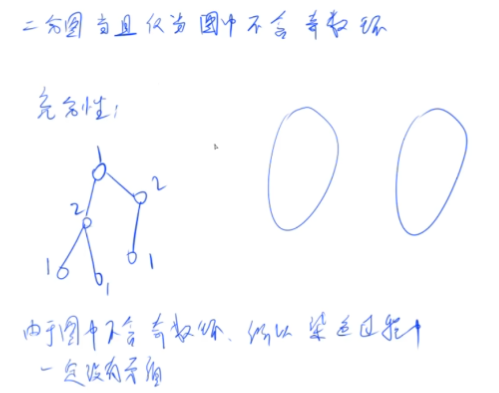 二分图当且仅当图中不含奇数环
充分性:
1
2
2
1
1
1
由于图中不含奇数环、所以染色过程中
一定没有矛盾